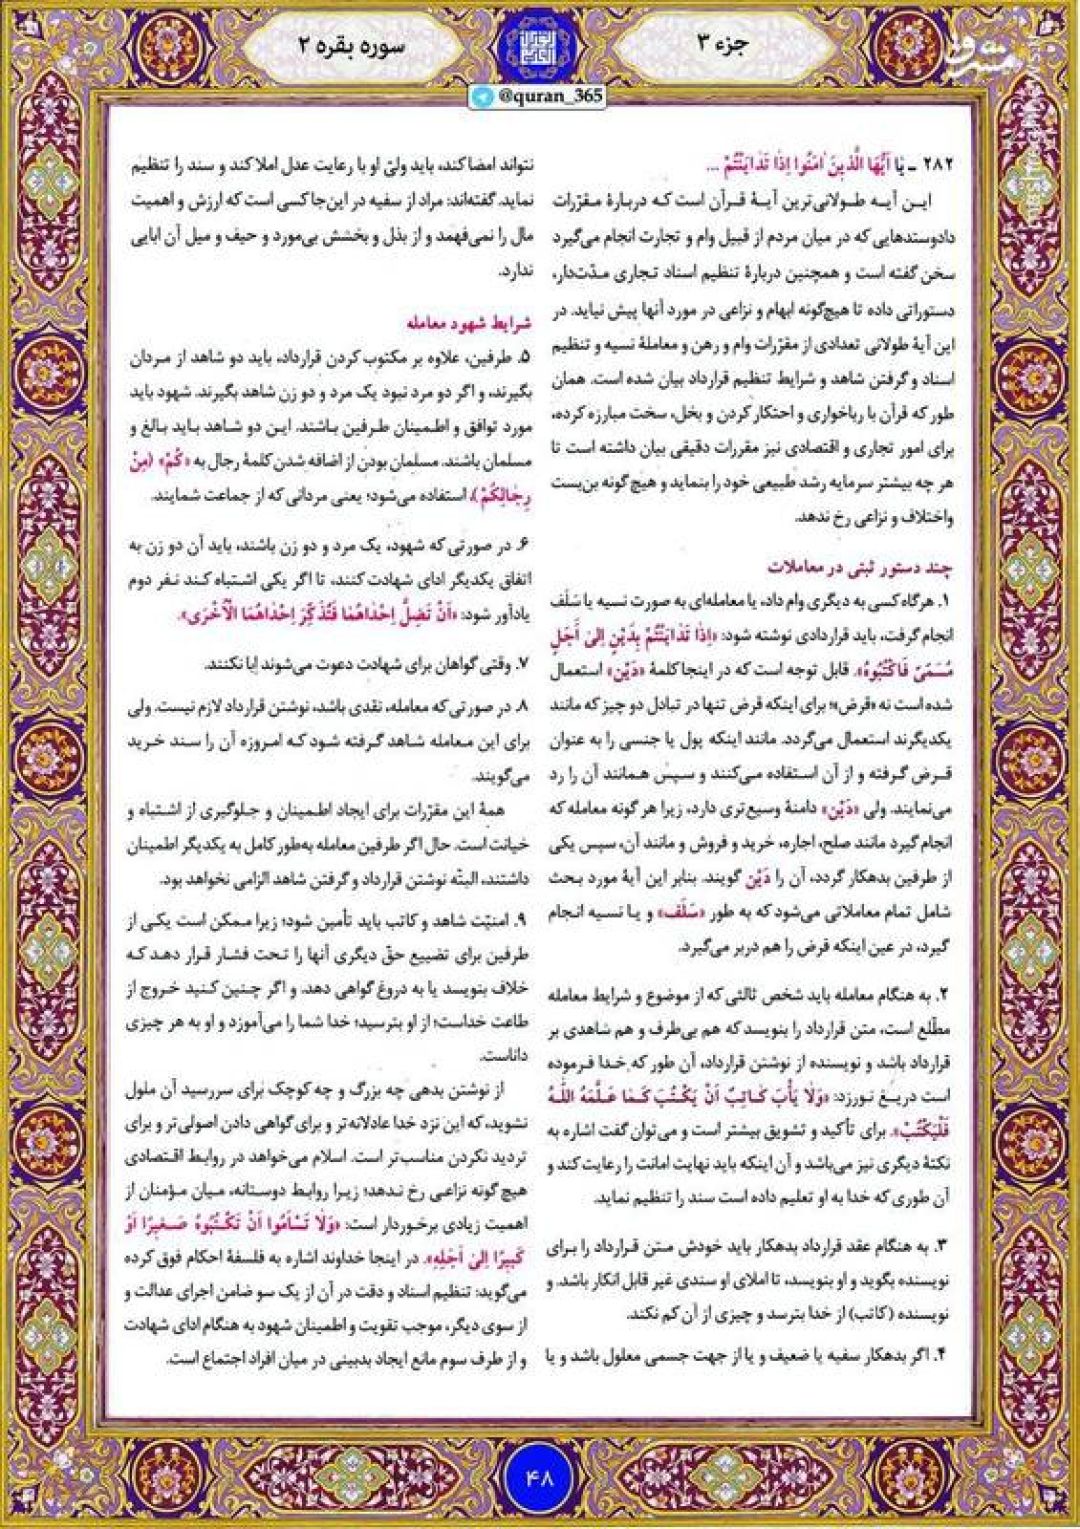 جزء ۳
سوره بقره ۲
@quran_365
مشرق
۲۸۲ ـ یا اَیُّهَا الَّذینَ اٰمَنُوا اِذٰا تَدٰایَنْتُمْ ...
ایـن آیـه طـولانی‌ترین آیـۀ قـرآن است کـه دربارۀ مـقرّرات
دادوستدهایی که در میان مردم از قبیل وام و تجارت انجام می‌گیرد
سخن گفته است و همچنین دربارۀ تنظیم اسناد تـجاری مـدّت‌دار،
دستوراتی داده تا هیچ‌گونه ابهام و نزاعی در مورد آنها پیش نیاید. در
این آیۀ طولانی تعدادی از مقرّرات وام و رهن و معاملۀ نسیه و تنظیم
اسناد و گرفتن شاهد و شرایط تنظیم قرارداد بیان شده است. همان
طور که قرآن با رباخواری و احتکار کردن و بخل، سخت مبارزه کرده،
برای امور تجاری و اقتصادی نیز مقررات دقیقی بیان داشته است تا
هر چه بیشتر سرمایه رشد طبیعی خود را بنماید و هیچ‌گونه بن‌بست
واختلاف و نزاعی رخ ندهد.
چند دستور ثبتی در معاملات
۱. هرگاه کسی به دیگری وام داد، یا معامله‌ای به صورت نسیه یا سَلَف
انجام گرفت، باید قراردادی نوشته شود: «اِذٰا تَدٰایَنْتُمْ بِدَیْنٍ اِلیٰ أَجَلٍ
مُسَمّیً فَاکْتُبُوهُ». قابل توجه است که در اینجا کلمۀ «دَیْن» استعمال
شده است نه «قرض»؛ برای اینکه قرض تنها در تبادل دو چیز که مانند
یکدیگرند استعمال می‌گردد. مانند اینکه پول یا جنسی را به عنوان
قـرض گرفته و از آن استفاده می‌کنند و سپس همانند آن را رد
می‌نمایند. ولی «دَیْن» دامنۀ وسیع‌تری دارد، زیرا هر گونه معامله که
انجام گیرد مانند صلح، اجاره، خرید و فروش و مانند آن، سپس یکی
از طرفین بدهکار گردد، آن را دَیْن گویند. بنابر این آیۀ مورد بحث
شامل تمام معاملاتی می‌شود که به طور «سَلَف» و یـا نسیه انـجام
گیرد، در عین اینکه قرض را هم دربر می‌گیرد.
۲. به هنگام معامله باید شخص ثالثی که از موضوع و شرایط معامله
مطّلع است، متن قرارداد را بنویسد که هم بی‌طرف و هم شاهدی بر
قرارداد باشد و نویسنده از نوشتن قرارداد، آن طور که خـدا فـرموده
است دریـغ نـورزد: «وَلٰا یَأْبَ کٰاتِبٌ اَنْ یَکْتُبَ کَمٰا عَلَّمَهُ اللّٰهُ
فَلْیَکْتُبْ». برای تأکید و تشویق بیشتر است و می‌توان گفت اشاره به
نکتۀ دیگری نیز می‌باشد و آن اینکه باید نهایت امانت را رعایت کند و
آن طوری که خدا به او تعلیم داده است سند را تنظیم نماید.
۳. به هنگام عقد قرارداد بدهکار باید خودش متن قرارداد را برای
نویسنده بگوید و او بنویسد، تا املای او سندی غیر قابل انکار باشد. و
نویسنده (کاتب) از خدا بترسد و چیزی از آن کم نکند.
۴. اگر بدهکار سفیه یا ضعیف و یا از جهت جسمی معلول باشد و یا
نتواند امضا کند، باید ولیّ او با رعایت عدل املا کند و سند را تنظیم
نماید. گفته‌اند: مراد از سفیه در این‌جا کسی است که ارزش و اهمیت
مال را نمی‌فهمد و از بذل و بخشش بی‌مورد و حیف و میل آن ابایی
ندارد.
شرایط شهود معامله
۵. طرفین، علاوه بر مکتوب کردن قرارداد، باید دو شاهد از مردان
بگیرند، و اگر دو مرد نبود یک مرد و دو زن شاهد بگیرند. شهود باید
مورد توافق و اطمینان طرفین باشند. این دو شاهد باید بالغ و
مسلمان باشند. مسلمان بودن از اضافه شدن کلمۀ رجال به «کُمْ» (مِنْ
رِجٰالِکُمْ)، استفاده می‌شود؛ یعنی مردانی که از جماعت شمایند.
۶. در صورتی که شهود، یک مرد و دو زن باشند، باید آن دو زن به
اتفاق یکدیگر ادای شهادت کنند، تا اگر یکی اشتباه کند نفر دوم
یادآور شود: «اَنْ تَضِلَّ اِحْدٰاهُمٰا فَتُذَکِّرَ اِحْدٰاهُمَا الْاُخْریٰ».
۷. وقتی گواهان برای شهادت دعوت می‌شوند إبا نکنند.
۸. در صورتی که معامله، نقدی باشد، نوشتن قرارداد لازم نیست. ولی
برای این معامله شاهد گرفته شود که امروزه آن را سند خرید
می‌گویند.
همۀ این مقرّرات برای ایجاد اطـمینان و جـلوگیری از اشـتباه و
خیانت است. حال اگر طرفین معامله به‌طور کامل به یکدیگر اطمینان
داشتند، البتّه نوشتن قرارداد و گرفتن شاهد الزامی نخواهد بود.
۹. امنیّت شاهد و کاتب باید تأمین شود؛ زیرا ممکن است یکی از
طرفین برای تضییع حقّ دیگری آنها را تـحت فشار قـرار دهـد کـه
خلاف بنویسد یا به دروغ گواهی دهد. و اگر چـنین کنید خروج از
طاعت خداست؛ از او بترسید؛ خدا شما را می‌آموزد و او به هر چیزی
داناست.
از نوشتن بدهی چه بزرگ و چه کوچک برای سررسید آن ملول
نشوید، که این نزد خدا عادلانه‌تر و برای گواهی دادن اصولی‌تر و برای
تردید نکردن مناسب‌تر است. اسلام می‌خواهد در روابط اقـتصادی
هیچ گونه نزاعی رخ نـدهد؛ زیـرا روابط دوستانه، مـیان مـؤمنان از
اهمیت زیادی برخـوردار است: «وَلٰا تَسْأَمُوا اَنْ تَکْتُبُوهُ صَغیرًا اَوْ
کَبیرًا اِلیٰ اَجَلِهِ». در اینجا خداوند اشاره به فلسفۀ احکام فوق کرده
می‌گوید: تنظیم اسناد و دقت در آن از یک سو ضامن اجرای عدالت و
از سوی دیگر، موجب تقویت و اطمینان شهود به هنگام ادای شهادت
و از طرف سوم مانع ایجاد بدبینی در میان افراد اجتماع است.
۴۸